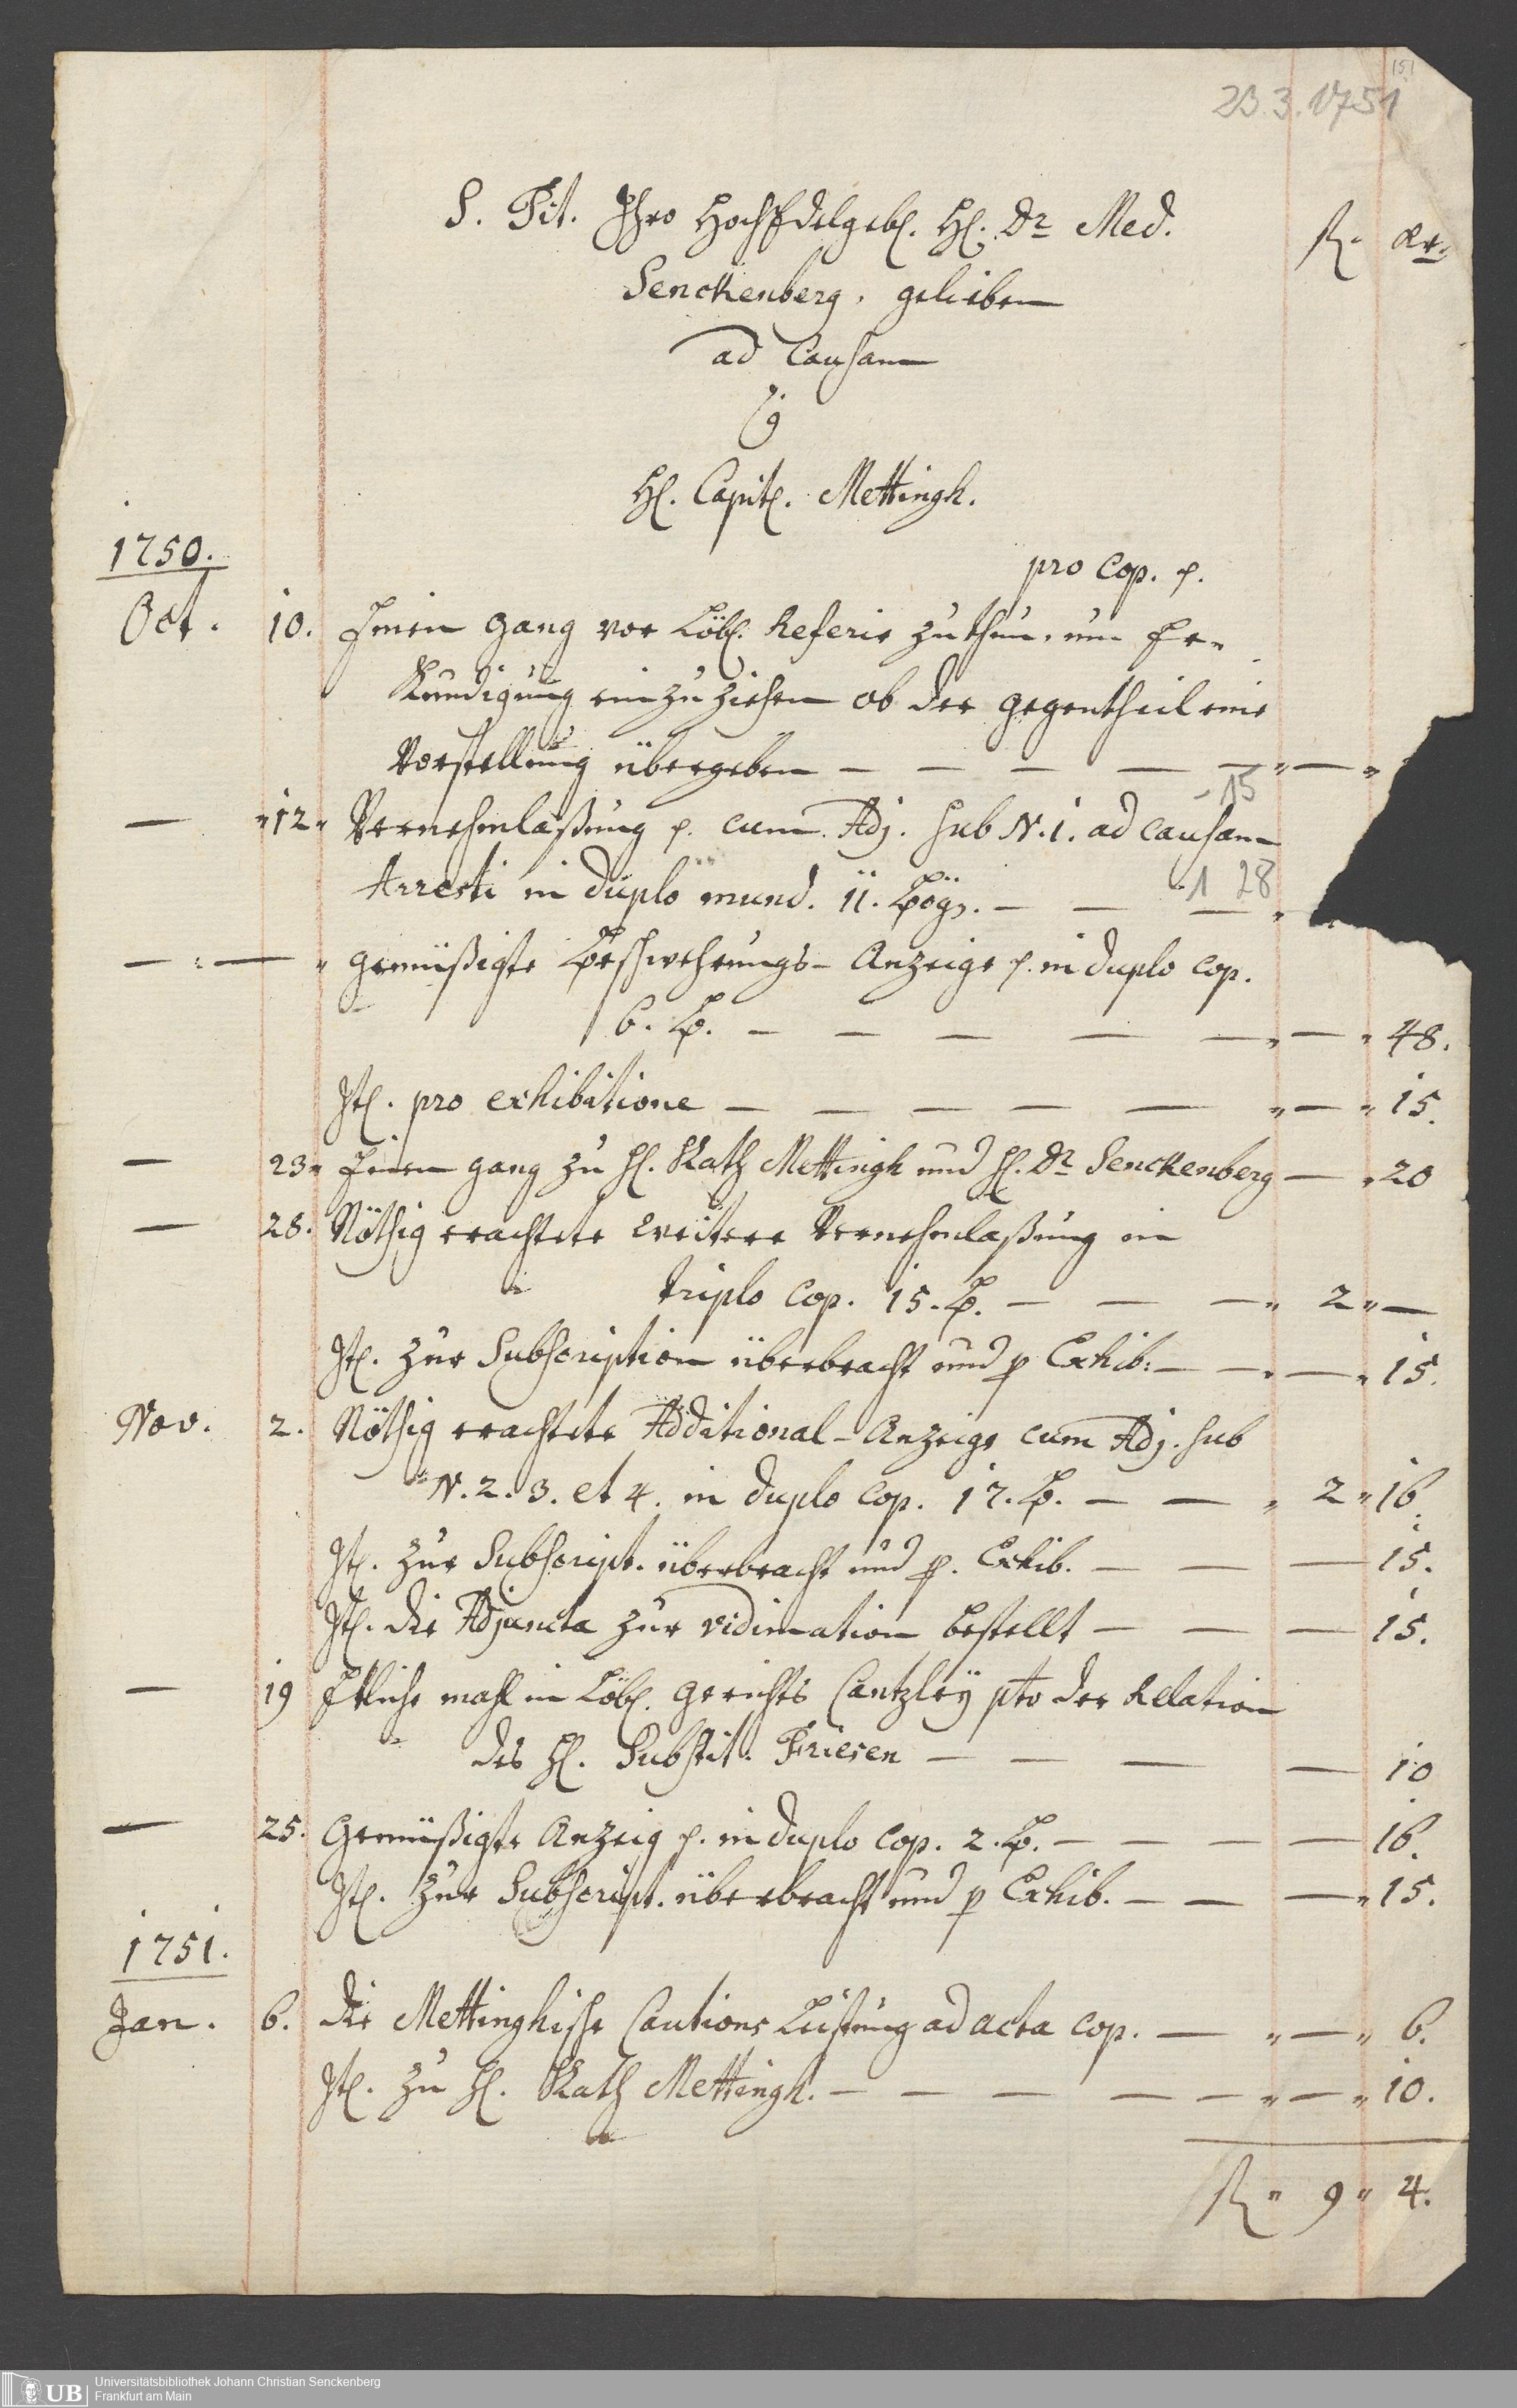 151
23.3.1751
S. Tit. Ihro HochEdelgeb. H. Dr Med.
fl. Xr.
Senckenberg. gelieben
ad Causam
Cg
H. Capit. Mettingh.
1750.
pro Cop. p.
Oct. 10. Einen Gang vor Löbl. Referir zu thun, um Er-
kundigung einzuziehen ob der Gegentheil eine
Vorstellung übergeben — — — — — " — "
15
— " 12 " Vernehmlaßung p. cum Adj. sub N. 1. ad causam
Arresti in duplo mund. 11. Bög. — — —
1 28
— " — " Gemüßigte Beschwehrungs-Anzeige p. in duplo Cop.
6. B. — — — — — " — " 48.
It. pro exhibitione — — — — — " — " 15.
— 23 " Einen Gang zu H. Rath Mettingh und H. Dr Senckenberg — " 20
— 28. Nöthig erachtete weitere Vernehmlaßung in
triplo Cop. 15. B. — — — " 2 " —
It. zur Subscription überbracht und p Exhib: — — " — " 15.
Nov. 2. Nöthig erachtete Additional-Anzeige cum Adj. sub
N. 2. 3. et 4. in duplo Cop. 17. B. — — " 2 " 16.
It. zur Subscript. überbracht und p. Exhib. — — — 15.
It. die Adjuncta zur vidimation bestellt — — — 15.
— 19 Etliche mahl in Löbl. Gerichts Cantzley pto der Relation
des H. Substit. Friesen — — — — 10
— 25. Gemüßigte Anzeig p. in duplo Cop. 2. B. — — — — 16.
It. zur Subscript. überbracht und p Exhib. — — — " 15.
1751.
Jan. 6. Die Mettinghische Cautions Leistung ad acta cop. — " — " 6.
It. zu H. Rath Mettingh. — — — — — " — " 10.
fl " 9 " 4.
UB Universitätsbibliothek Johann Christian Senckenberg
Frankfurt am Main